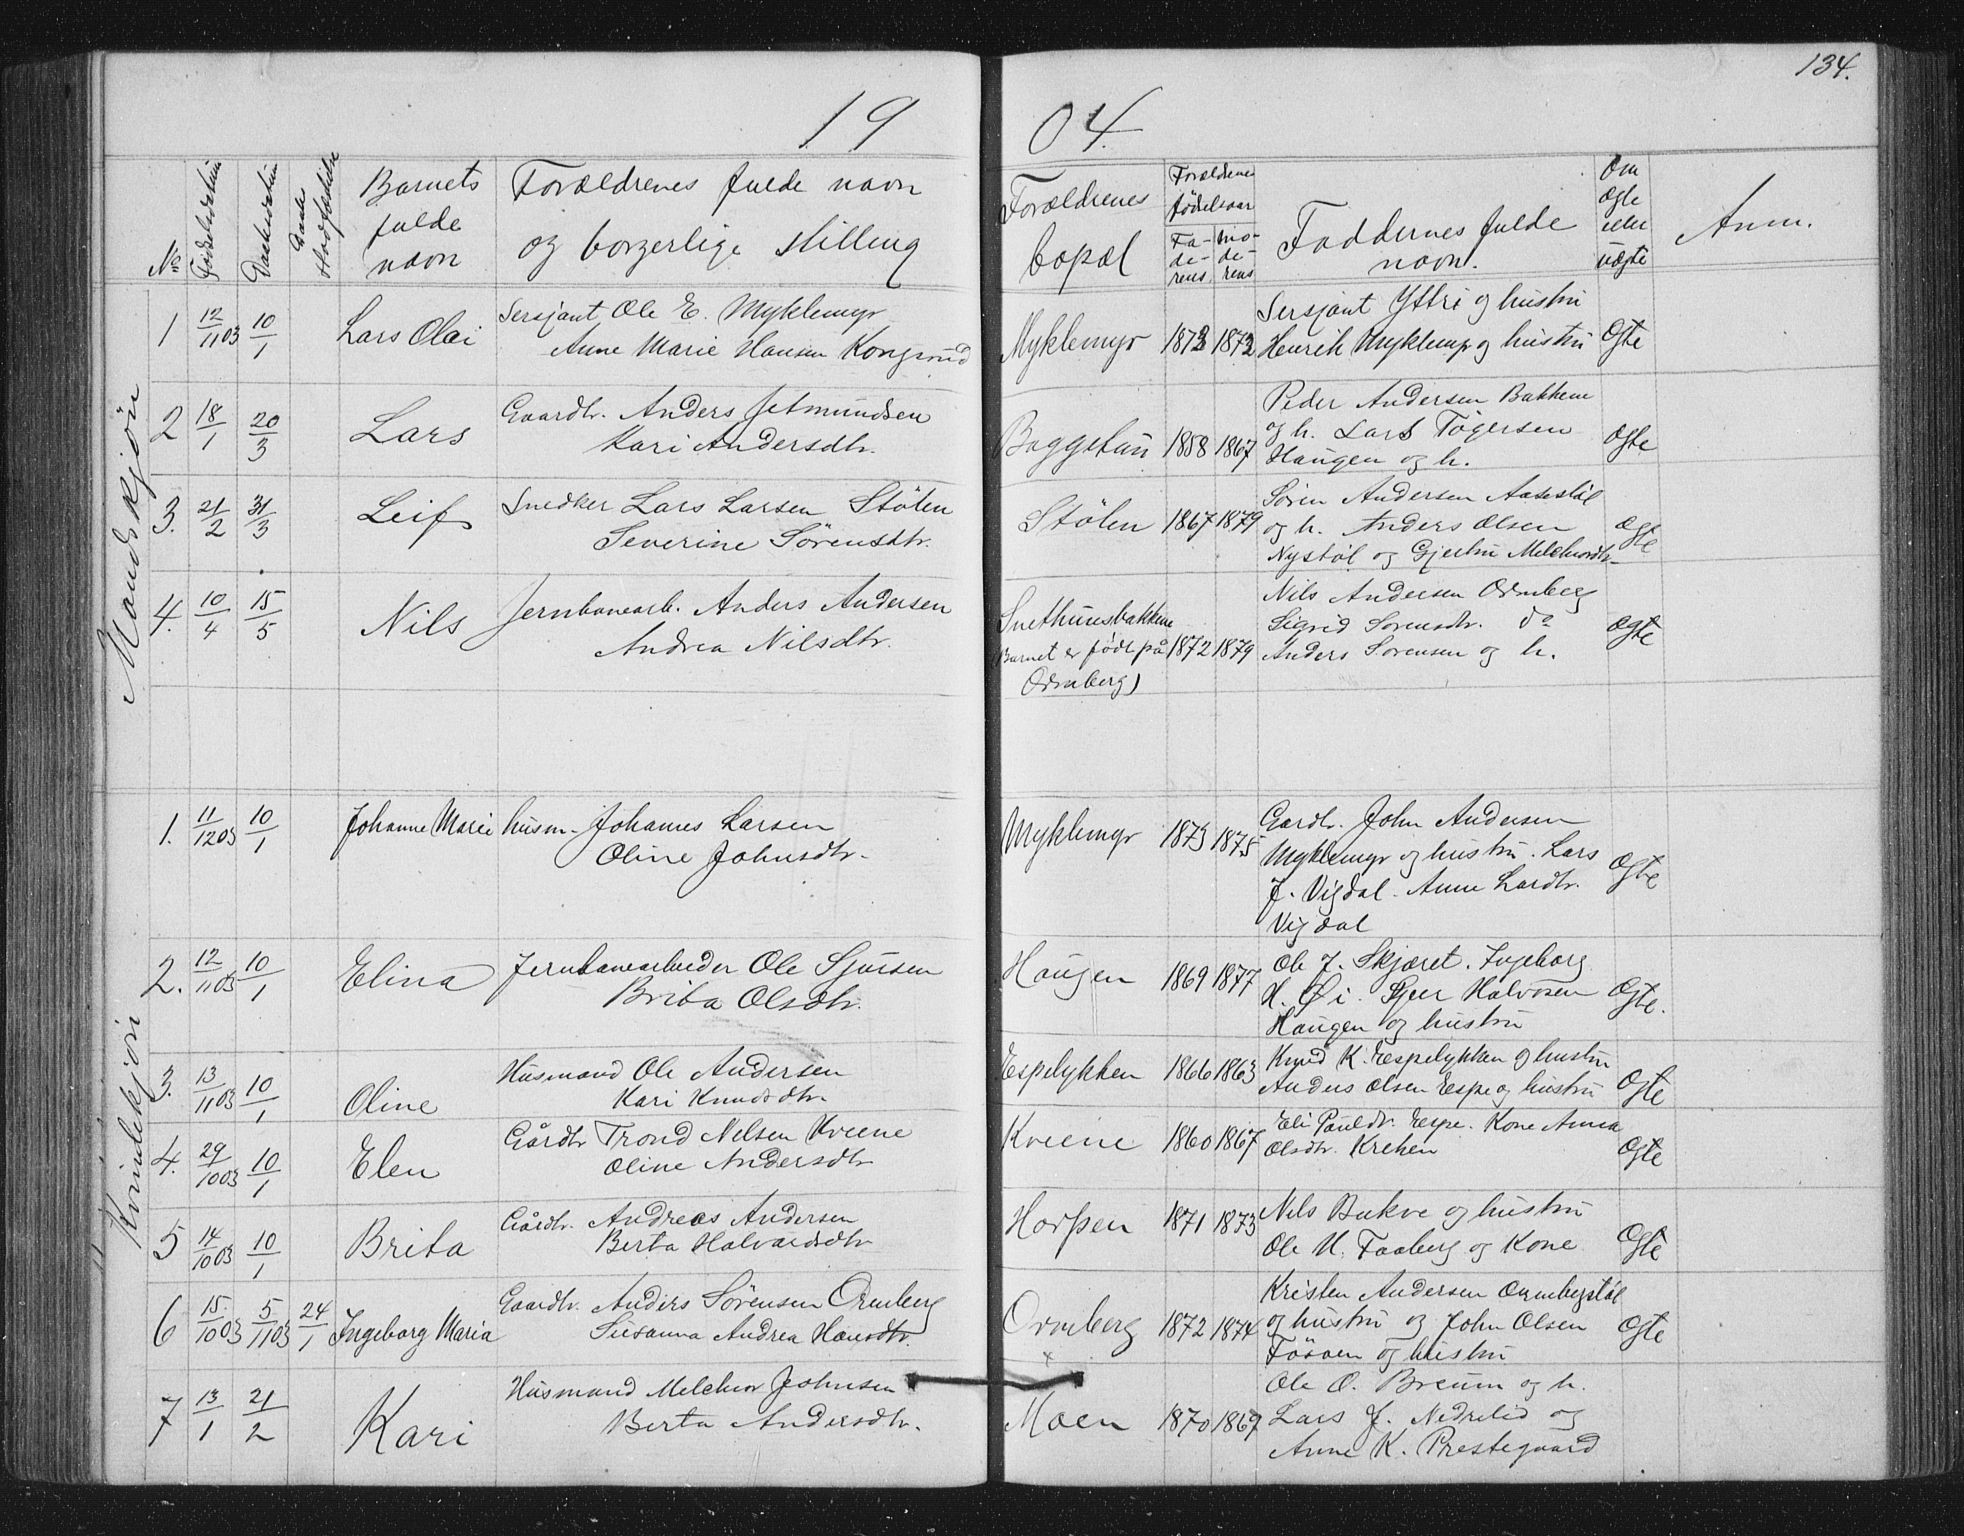 134.
19 04.
No Fødselsdatum Daabsdatum Barnets fulde navn Forældrenes fulde navn og borgerlige stilling Forældrenes bopæl Forældrenes fødselsaar Faderens Moderens Faddernes fulde navn. Om ægte eller uægte Anm.
Mandskjøn
1 12/11 03 10/1 Lars Olai Sersjant Ole E. Myklemyr
Anne Marie Hansen Kongsrud
Myklemyr 1873 1872 Sersjant Yttri og hustru
Henrik Myklemyr og hustru Ægte
2 18/1 20/3 Lars Gaardbr. Anders Jetmundsen
Kari Andersdtr.
Baggetun 1858 1867 Peder Andersen Bakkene
og h. Lars Tøgersen
Haugen og h. Ægte
3. 21/2 31/3 Leif Snedker Lars Larsen Stölen
Severine Sörensdtr.
Stölen 1867 1879 Sörin Andersen Aasestöl
og h. Anders Olsen
Nystöl og Gjertru Melchiordtr. Ægte
4. 10/4 15/5 Nils Jernbanearb. Anders Andersen
Andrea Nilsdtr.
Snethunsbakkene
Barnet er født på
Ormberg)
1872 1879 Nils Andersen Ormberg
Sigrid Sorensdtr. do
Anders Sorensen og h. Ægte
Kvindekjön
1. 11/12 03 10/1 Johanne Marie husm. Johannes Larsen
Oline Johnsdtr.
Myklemyr 1873 1875 Gardbr. John Andersen
Myklemyr og hustru. Lars
J. Vigdal. Anne Larsdtr.
Vigdal Ægte
2. 12/11 03 10/1 Elina Jernbanearbeider Ole Sjursen
Brita Olsdtr.
Haugen 1869 1877 Ole J. Skjæret. Ingeborg
H. Øi. Peer Halvorsen
Haugen og hustru Ægte.
3. 13/11 03 10/1 Oline Husmand Ole Andersen
Kari Knudsdtr
Espelykken 1866 1863 Knud K. Espelykken og hustru
Anders Olsen Espe og hustru Ægte
4. 29/10 03 10/1 Elen Gårdbr Trond Nelsen Kveene
Oline Andersdtr
Kveene 1860 1867 Eli Pauldr. Espe. Kone Anna
Olsdtr. Krehen Ægte
5 14/10 03 10/1 Brita Gårdbr. Andreas Andersen
Berta Halvardsdtr
Horpen 1871 1873 Nils Bukve og hustru
Ole H. Faaberg og Kone Ægte
6 15/10 03 5/11 03 24/1 Ingeborg Maria Gaardbr. Anders Sörensen Ormberg
Susanna Andrea Hansdtr.
Ormberg 1872 1874 Kristen Andersen Ormbergstöl
og hustru og John Olsen
Fösoen og hustru Ægte
7 13/1 21/2 Kari Husmand Melchior Johnsen
Berta Andersdtr.
Moen 1870 1867 Ole O. Breum og h.
Lars J. Nedrelid og
Anne K. Prestegaard